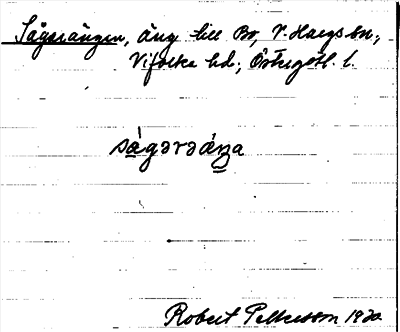 Sågareängen, äng till Bo, V. Hargs sn,
Vifolka hd; Östergötl. l.
sågərəäŋa
Robert Pettersson 1930